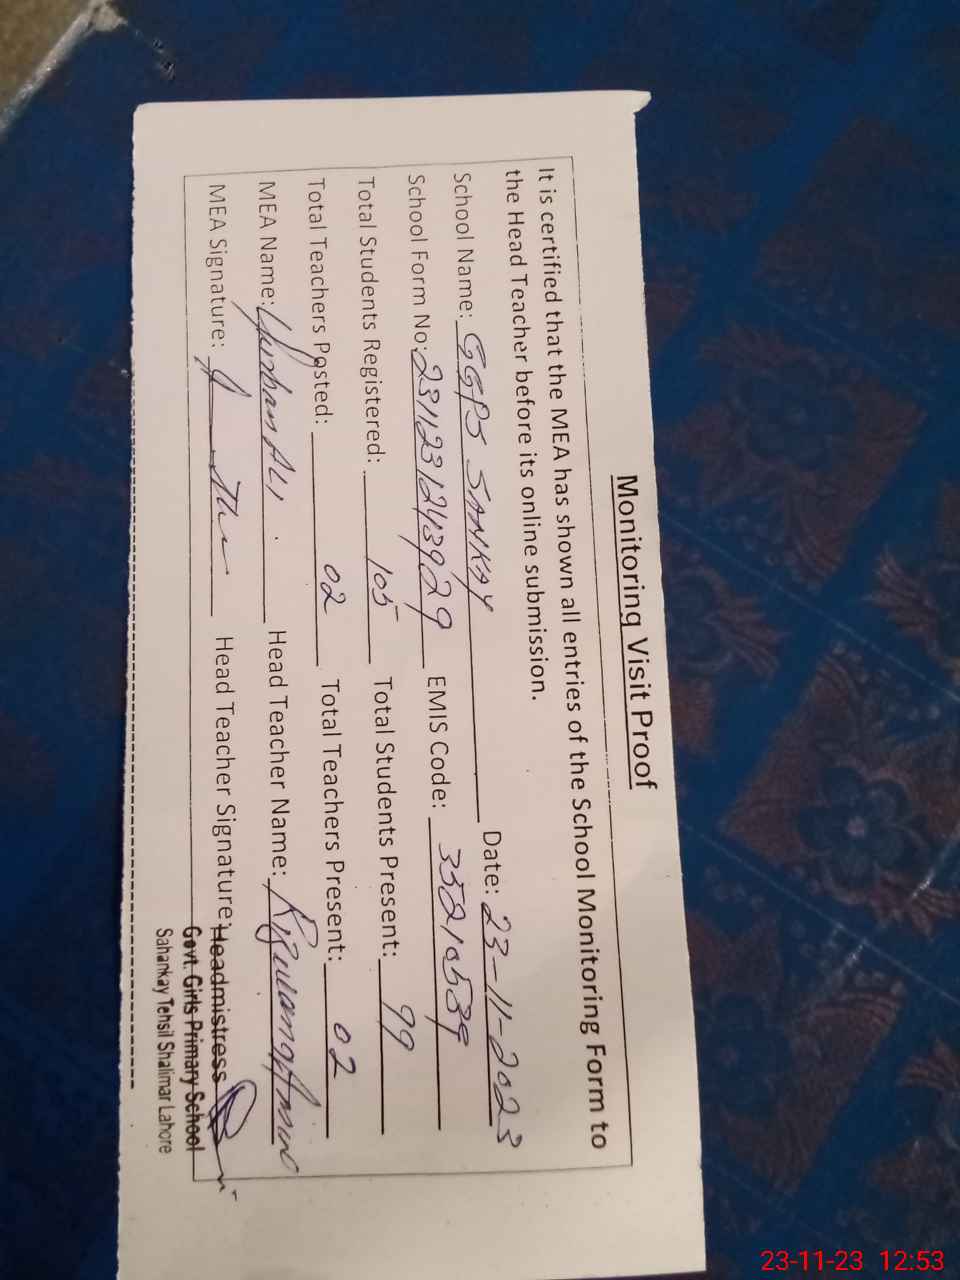 Monitoring Visit Proof
It is certified that the MEA has shown all entries of the School Monitoring Form to
the Head Teacher before its online submission.
School Name: GGPS SANKAY Date: 23-11-2023
School Form No: 2311231243929 EMIS Code: 35210539
Total Students Registered: 105 Total Students Present: 99
Total Teachers Posted: 02 Total Teachers Present: 02
MEA Name: Ali Head Teacher Name: Rizwana
MEA Signature: Head Teacher Signature:
Headmistress
Govt. Girls Primary School
Sahankay Tehsil Shalimar Lahore
23-11-23 12:53